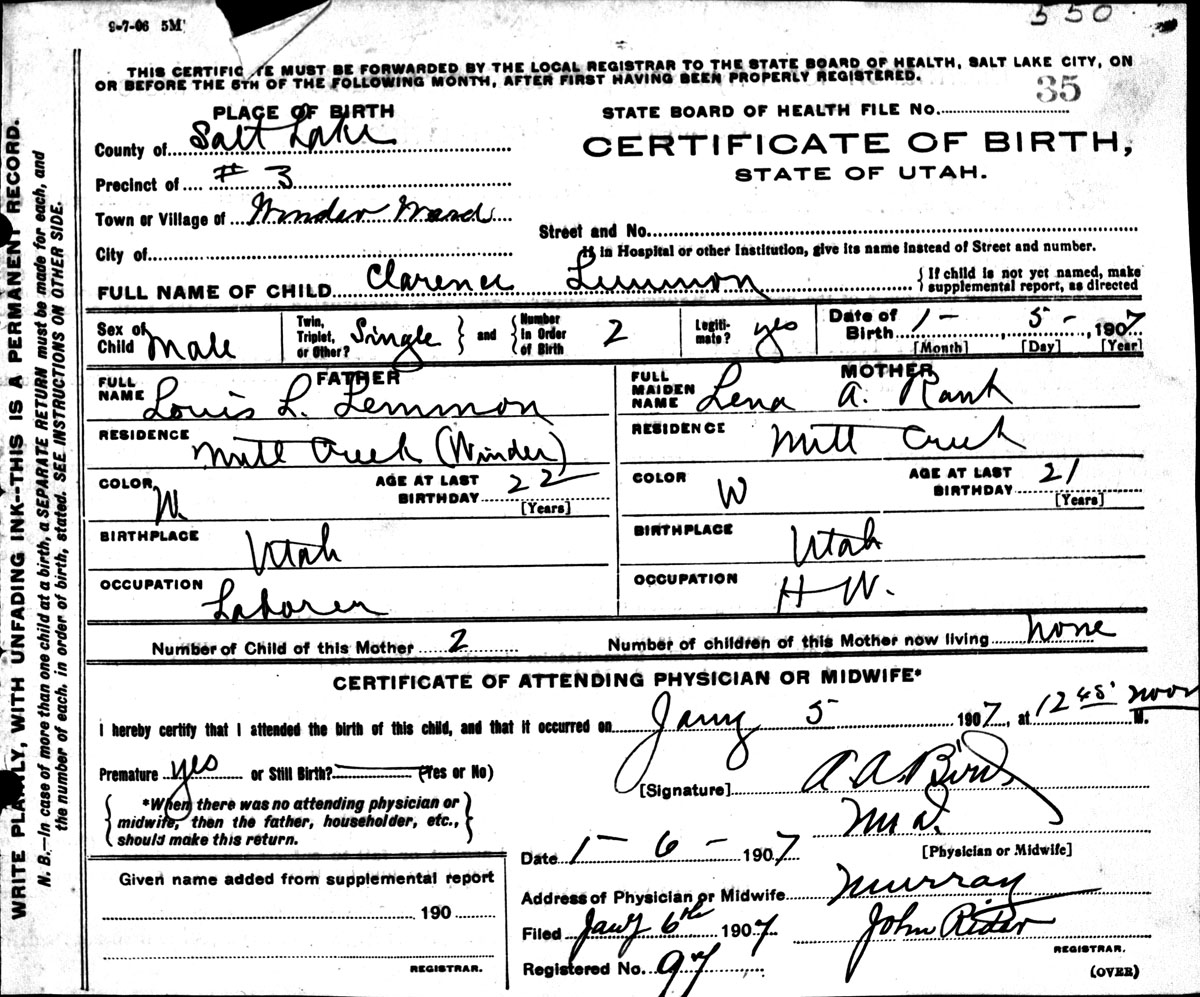 9-7-06 5M
350
THIS CERTIFIC TE MUST BE FORWARDED BY THE LOCAL REGISTRAR TO THE STATE BOARD OF HEALTH, SALT LAKE CITY, ON
OR BEFORE THE 5TH OF THE FOLLOWING MONTH, AFTER FIRST HAVING BEEN PROPERLY REGISTERED.
PLACE OF BIRTH
STATE BOARD OF HEALTH FILE NO. 35
County of Salt Lake
CERTIFICATE OF BIRTH,
STATE OF UTAH.
Precinct of # 3
Town or Village of Winder Ward
Street and No.
City of
If in Hospital or other Institution, give its name instead of Street and number.
FULL NAME OF CHILD Clarence Lemmon {If child is not yet named, make supplemental report, as directed
Sex of Child Male
Twin, Triplet, or Other? Single } and { Number in Order of Birth 2
Legitimate? yes
Date of Birth 1 - 5 - 1907
[Month] [Day] [Year]
FATHER
FULL NAME Louis L. Lemmon
MOTHER
FULL MAIDEN NAME Lena A. Rank
RESIDENCE Mill Creek (Winder)
RESIDENCE Mill Creek
COLOR W. AGE AT LAST BIRTHDAY 22 [Years]
COLOR W AGE AT LAST BIRTHDAY 21 [Years]
BIRTHPLACE Utah
BIRTHPLACE Utah
OCCUPATION Laborer
OCCUPATION H W.
Number of Child of this Mother 2 Number of children of this Mother now living none
CERTIFICATE OF ATTENDING PHYSICIAN OR MIDWIFE*
I hereby certify that I attended the birth of this child, and that it occurred on Jany 5 1907, at 12 45 noon M.
Premature yes or Still Birth? (Yes or No)
[Signature] A. A. Bird
M D.
[Physician or Midwife]
{*When there was no attending physician or
midwife, then the father, householder, etc.,
should make this return.}
Date 1 - 6 - 1907
Given name added from supplemental report
190
REGISTRAR.
Address of Physician or Midwife Murray
Filed Jany 6th 1907 John Rider
REGISTRAR.
Registered No. 97
(OVER)
WRITE PLAINLY, WITH UNFADING INK--THIS IS A PERMANENT RECORD.
N. B.—In case of more than one child at a birth, a SEPARATE RETURN must be made for each, and
the number of each, in order of birth, stated. SEE INSTRUCTIONS ON OTHER SIDE.